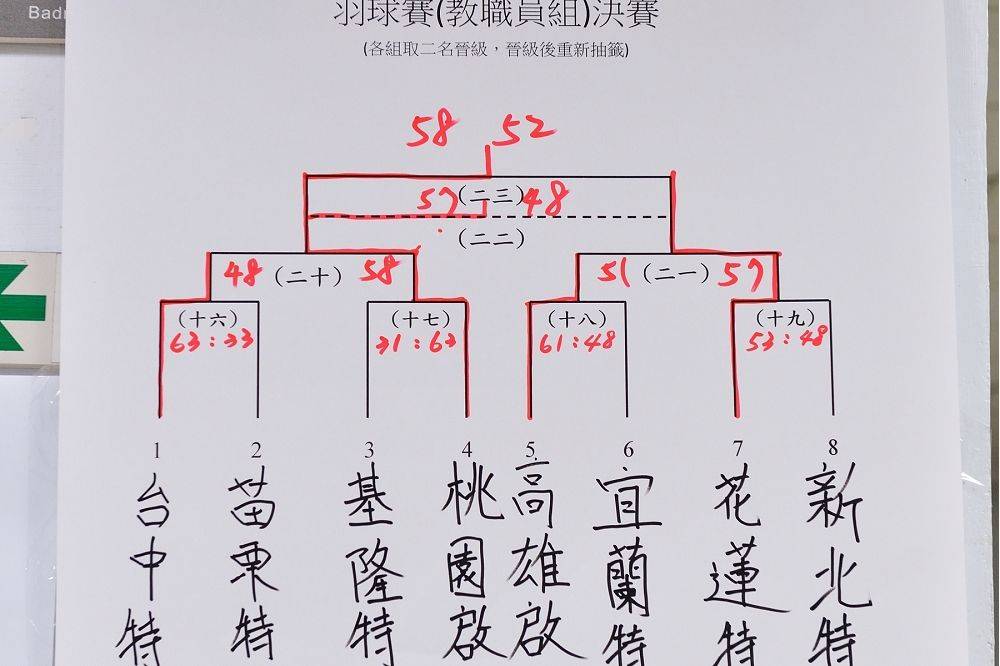 Badm
羽球賽(教職員組)決賽
(各組取二名晉級，晉級後重新抽籤)
58 52
57 (二三) 48
(二二)
48 (二十) 58 51 (二一) 57
(十六) (十七) (十八) (十九)
63:33 31:63 61:48 53:48
1 2 3 4 5 6 7 8
台中特
苗栗特
基隆特
桃園啟
高雄啟
宜蘭特
花蓮特
新北特